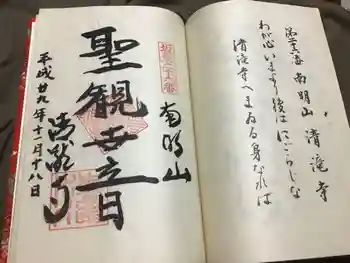 第二十六番 南明山 清滝寺
わが心いまより後はにごらじな
清滝寺へまゐる身なれば
南明山
聖観世音
清瀧寺
平成廿九年十一月十八日